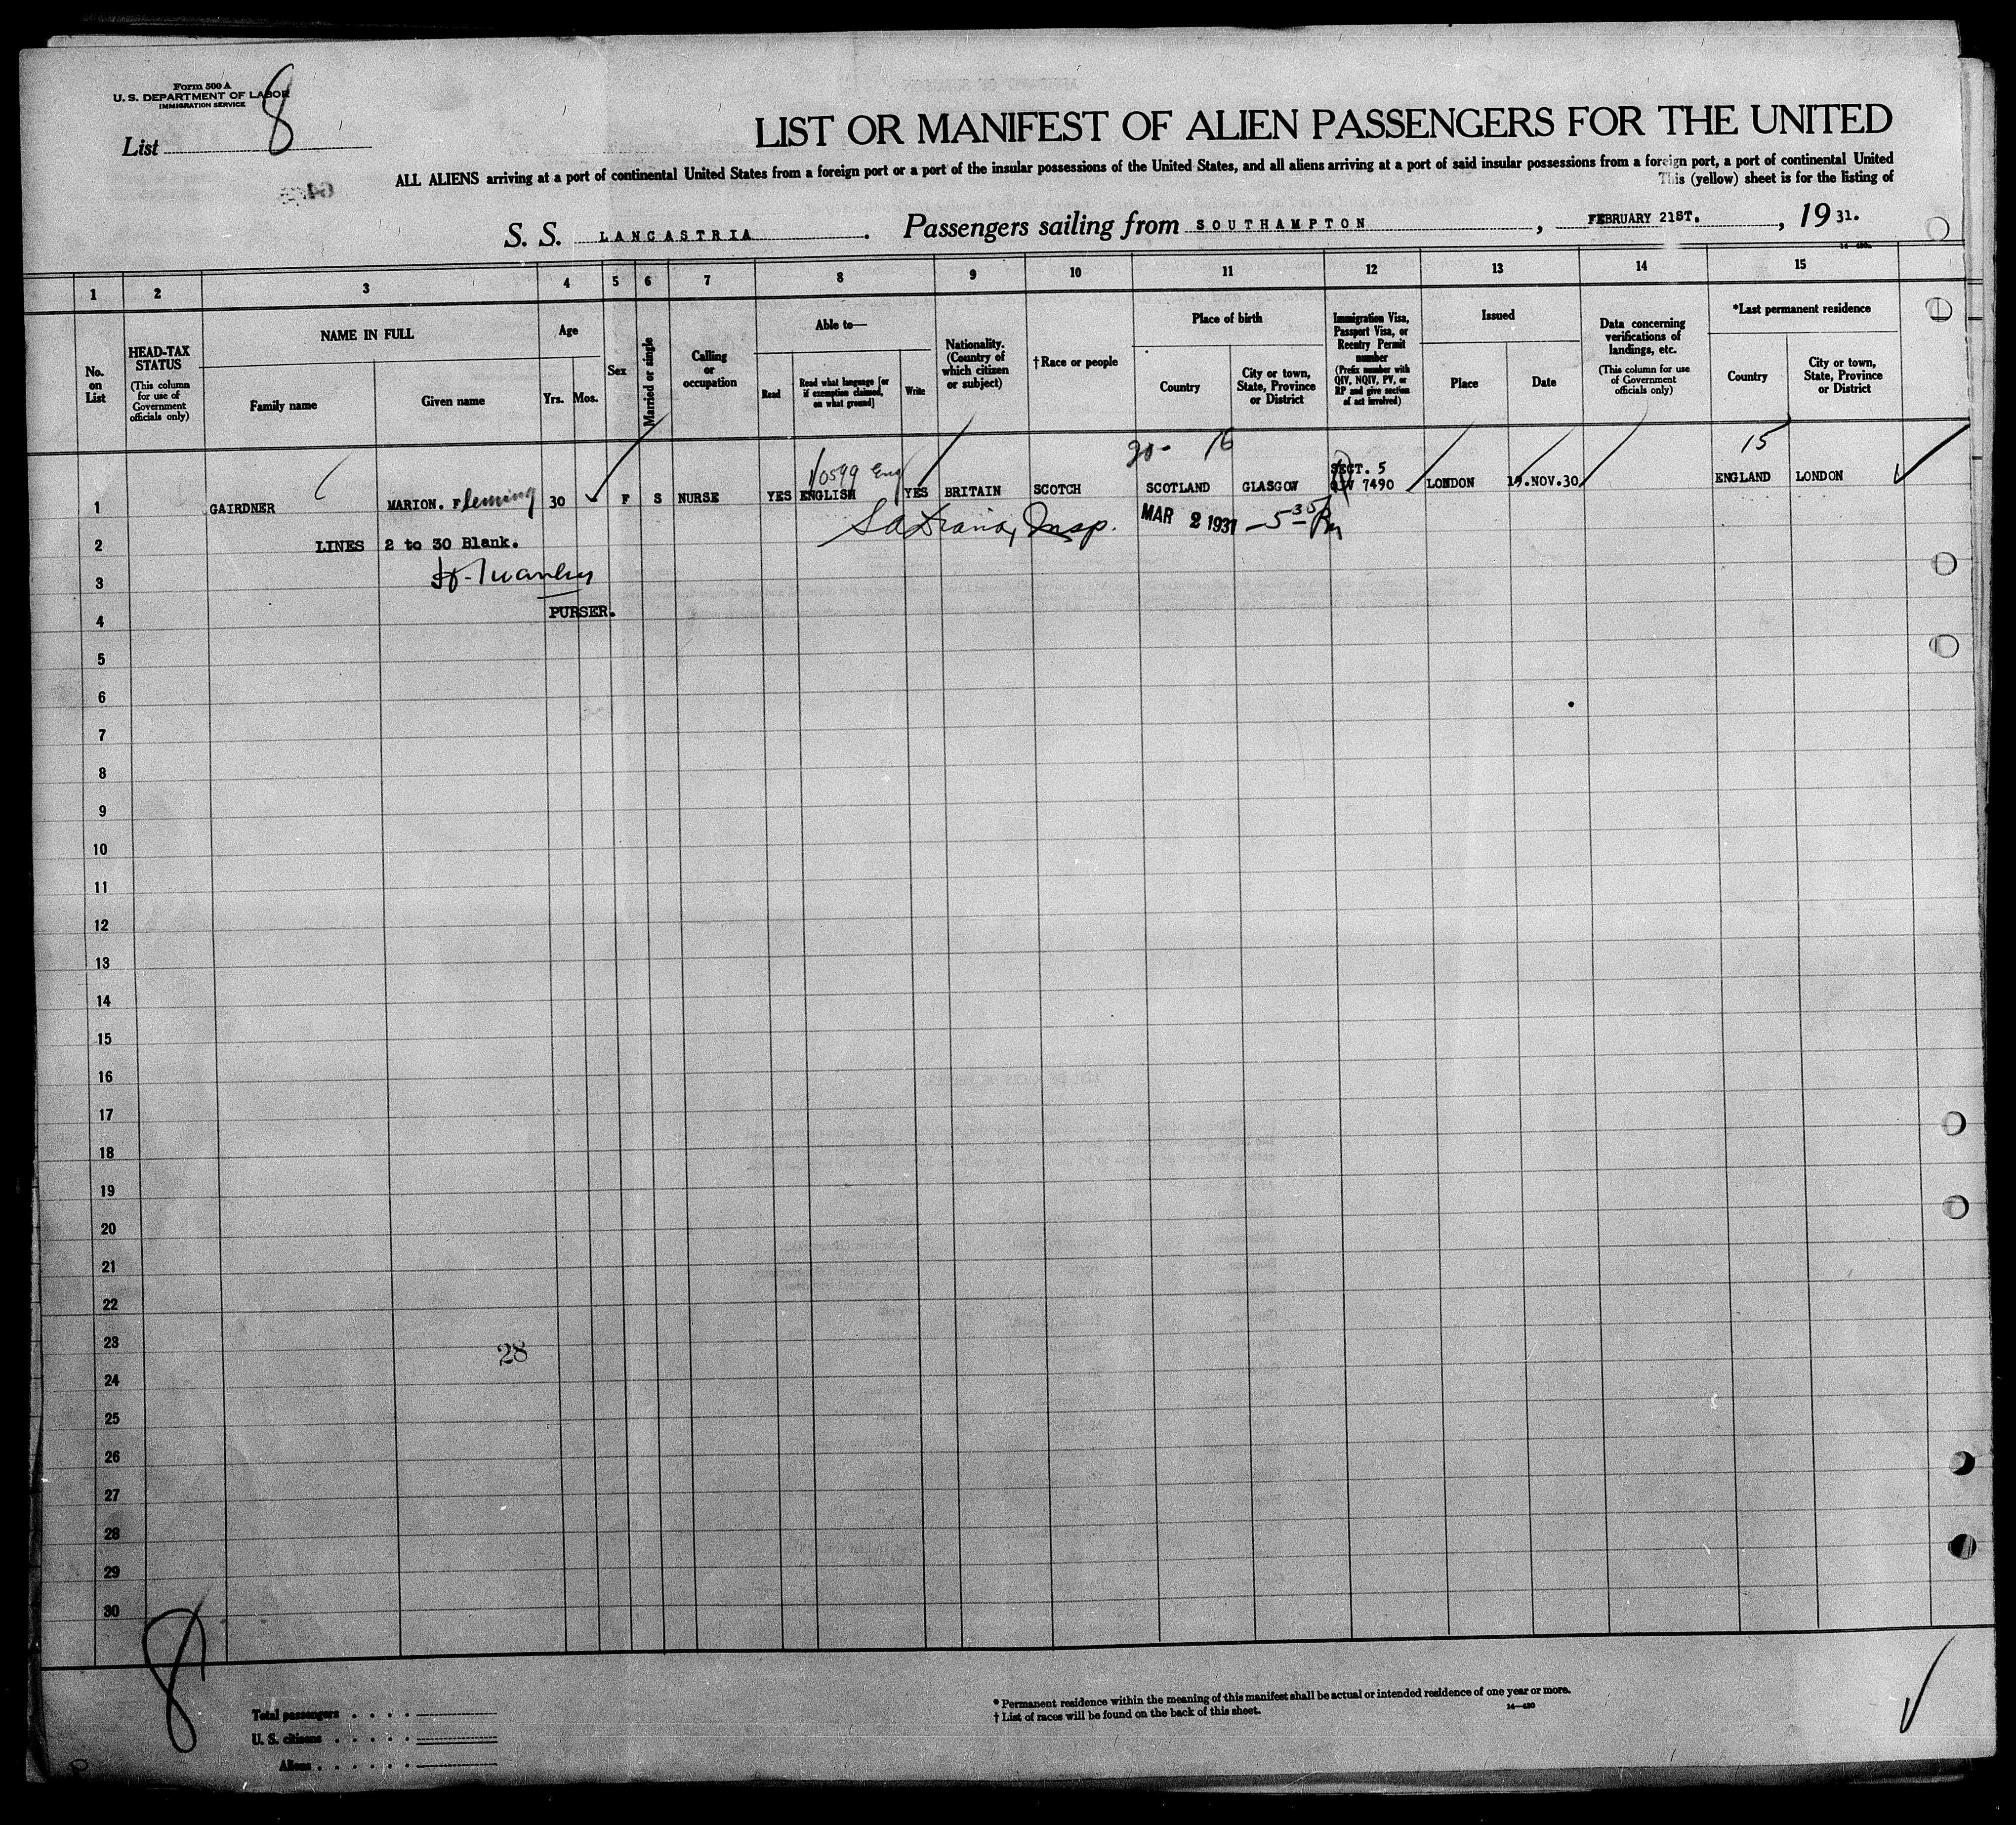 Form 500 A
U. S. DEPARTMENT OF LABOR
IMMIGRATION SERVICE
List 8
LIST OR MANIFEST OF ALIEN PASSENGERS FOR THE UNITED
ALL ALIENS arriving at a port of continental United States from a foreign port or a port of the insular possessions of the United States, and all aliens arriving at a port of said insular possessions from a foreign port, a port of continental United
This (yellow) sheet is for the listing of
S. S. LANCASTRIA. Passengers sailing from SOUTHAMPTON, FEBRUARY 21ST., 19 31.
1 2 3 4 5 6 7 8 9 10 11 12 13 14 15
No. on List
HEAD-TAX STATUS
(This column for use of Government officials only)
NAME IN FULL
Family name
Given name
Age
Yrs. Mos.
Sex
Married or single
Calling or occupation
Able to—
Read
Read what language [or if exemption claimed, on what ground]
Write
Nationality. (Country of which citizen or subject)
† Race or people
Place of birth
Country
City or town, State, Province or District
Immigration Visa, Passport Visa, or Reentry Permit number
(Prefix number with QIV, NQIV, PV, or RP and give section of act involved)
Issued
Place
Date
Data concerning verifications of landings, etc.
(This column for use of Government officials only)
*Last permanent residence
Country
City or town, State, Province or District
15
10599 Eng
SECT. 5
1 GAIRDNER MARION. Fleming 30 F S NURSE YES ENGLISH YES BRITAIN SCOTCH SCOTLAND GLASGOW QIV 7490 LONDON 19.NOV.30 ENGLAND LONDON
Insp. MAR 2 1931 - 5 35 PM
2 LINES 2 to 30 Blank.
3
4 PURSER.
5
6
7
8
9
10
11
12
13
14
15
16
17
18
19
20
21
22
23 28
24
25
26
27
28
29
30
8
Total passengers . . . .
U. S. citizens . . . . .
Aliens . . . . . .
* Permanent residence within the meaning of this manifest shall be actual or intended residence of one year or more.
† List of races will be found on the back of this sheet.
14—430